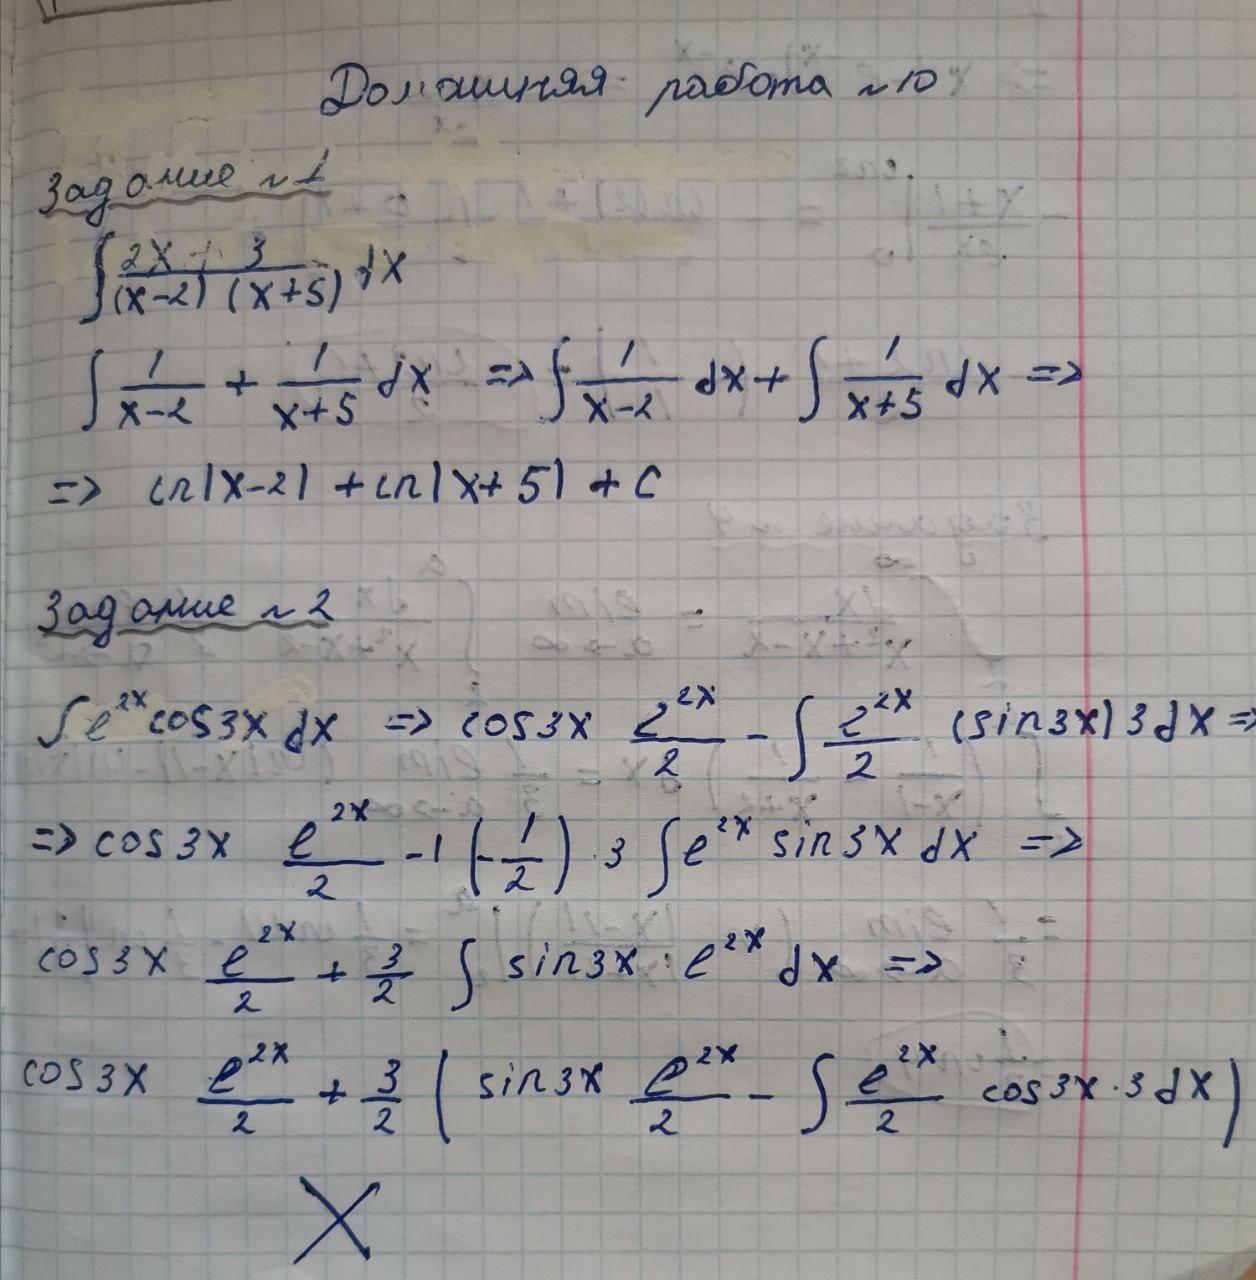 Домашняя работа №10
Задание №1
∫ (2x + 3)/((x-2) (x+5)) dx
∫ 1/(x-2) + 1/(x+5) dx => ∫ 1/(x-2) dx + ∫ 1/(x+5) dx =>
=> ln|x-2| + ln|x+5| + C
Задание №2
∫e^{2x} cos3x dx => cos3x e^{2x}/2 - ∫ e^{2x}/2 (sin3x) 3dx =>
=> cos3x e^{2x}/2 -1 (-1/2) · 3 ∫e^{2x} sin3x dx =>
cos3x e^{2x}/2 + 3/2 ∫ sin3x · e^{2x} dx =>
cos3x e^{2x}/2 + 3/2 (sin3x e^{2x}/2 - ∫ e^{2x}/2 cos3x · 3 dx)